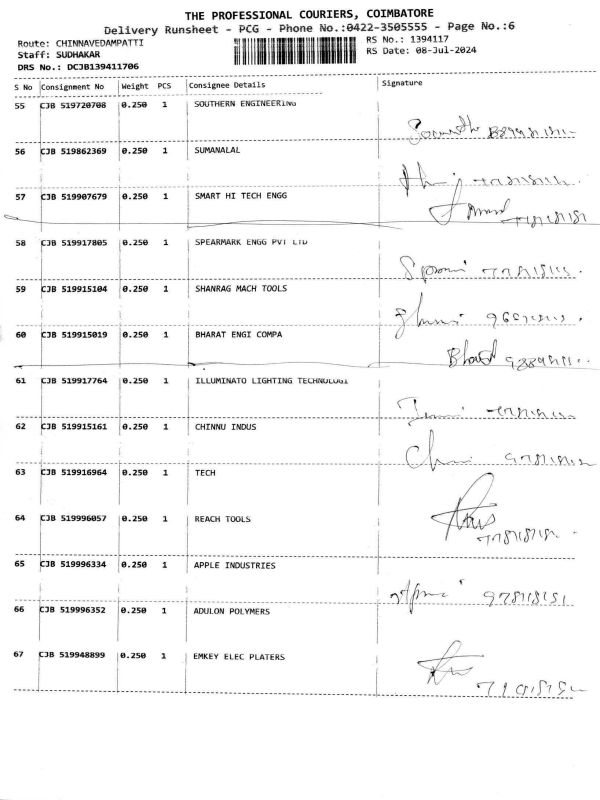 THE PROFESSIONAL COURIERS, COIMBATORE
Delivery Runsheet - PCG - Phone No.:0422-3505555 - Page No.:6
Route: CHINNAVEDAMPATTI
RS No.: 1394117
Staff: SUDHAKAR
RS Date: 08-Jul-2024
DRS No.: DCJB139411706
S No Consignment No Weight PCS Consignee Details Signature
55 CJB 519720708 0.250 1 SOUTHERN ENGINEERING
56 CJB 519862369 0.250 1 SUMANALAL
57 CJB 519907679 0.250 1 SMART HI TECH ENGG
58 CJB 519917805 0.250 1 SPEARMARK ENGG PVT LTD
59 CJB 519915104 0.250 1 SHANRAG MACH TOOLS
60 CJB 519915019 0.250 1 BHARAT ENGI COMPA
61 CJB 519917764 0.250 1 ILLUMINATO LIGHTING TECHNOLOGI
62 CJB 519915161 0.250 1 CHINNU INDUS
63 CJB 519916964 0.250 1 TECH
64 CJB 519996057 0.250 1 REACH TOOLS
65 CJB 519996334 0.250 1 APPLE INDUSTRIES
66 CJB 519996352 0.250 1 ADULON POLYMERS
67 CJB 519948899 0.250 1 EMKEY ELEC PLATERS